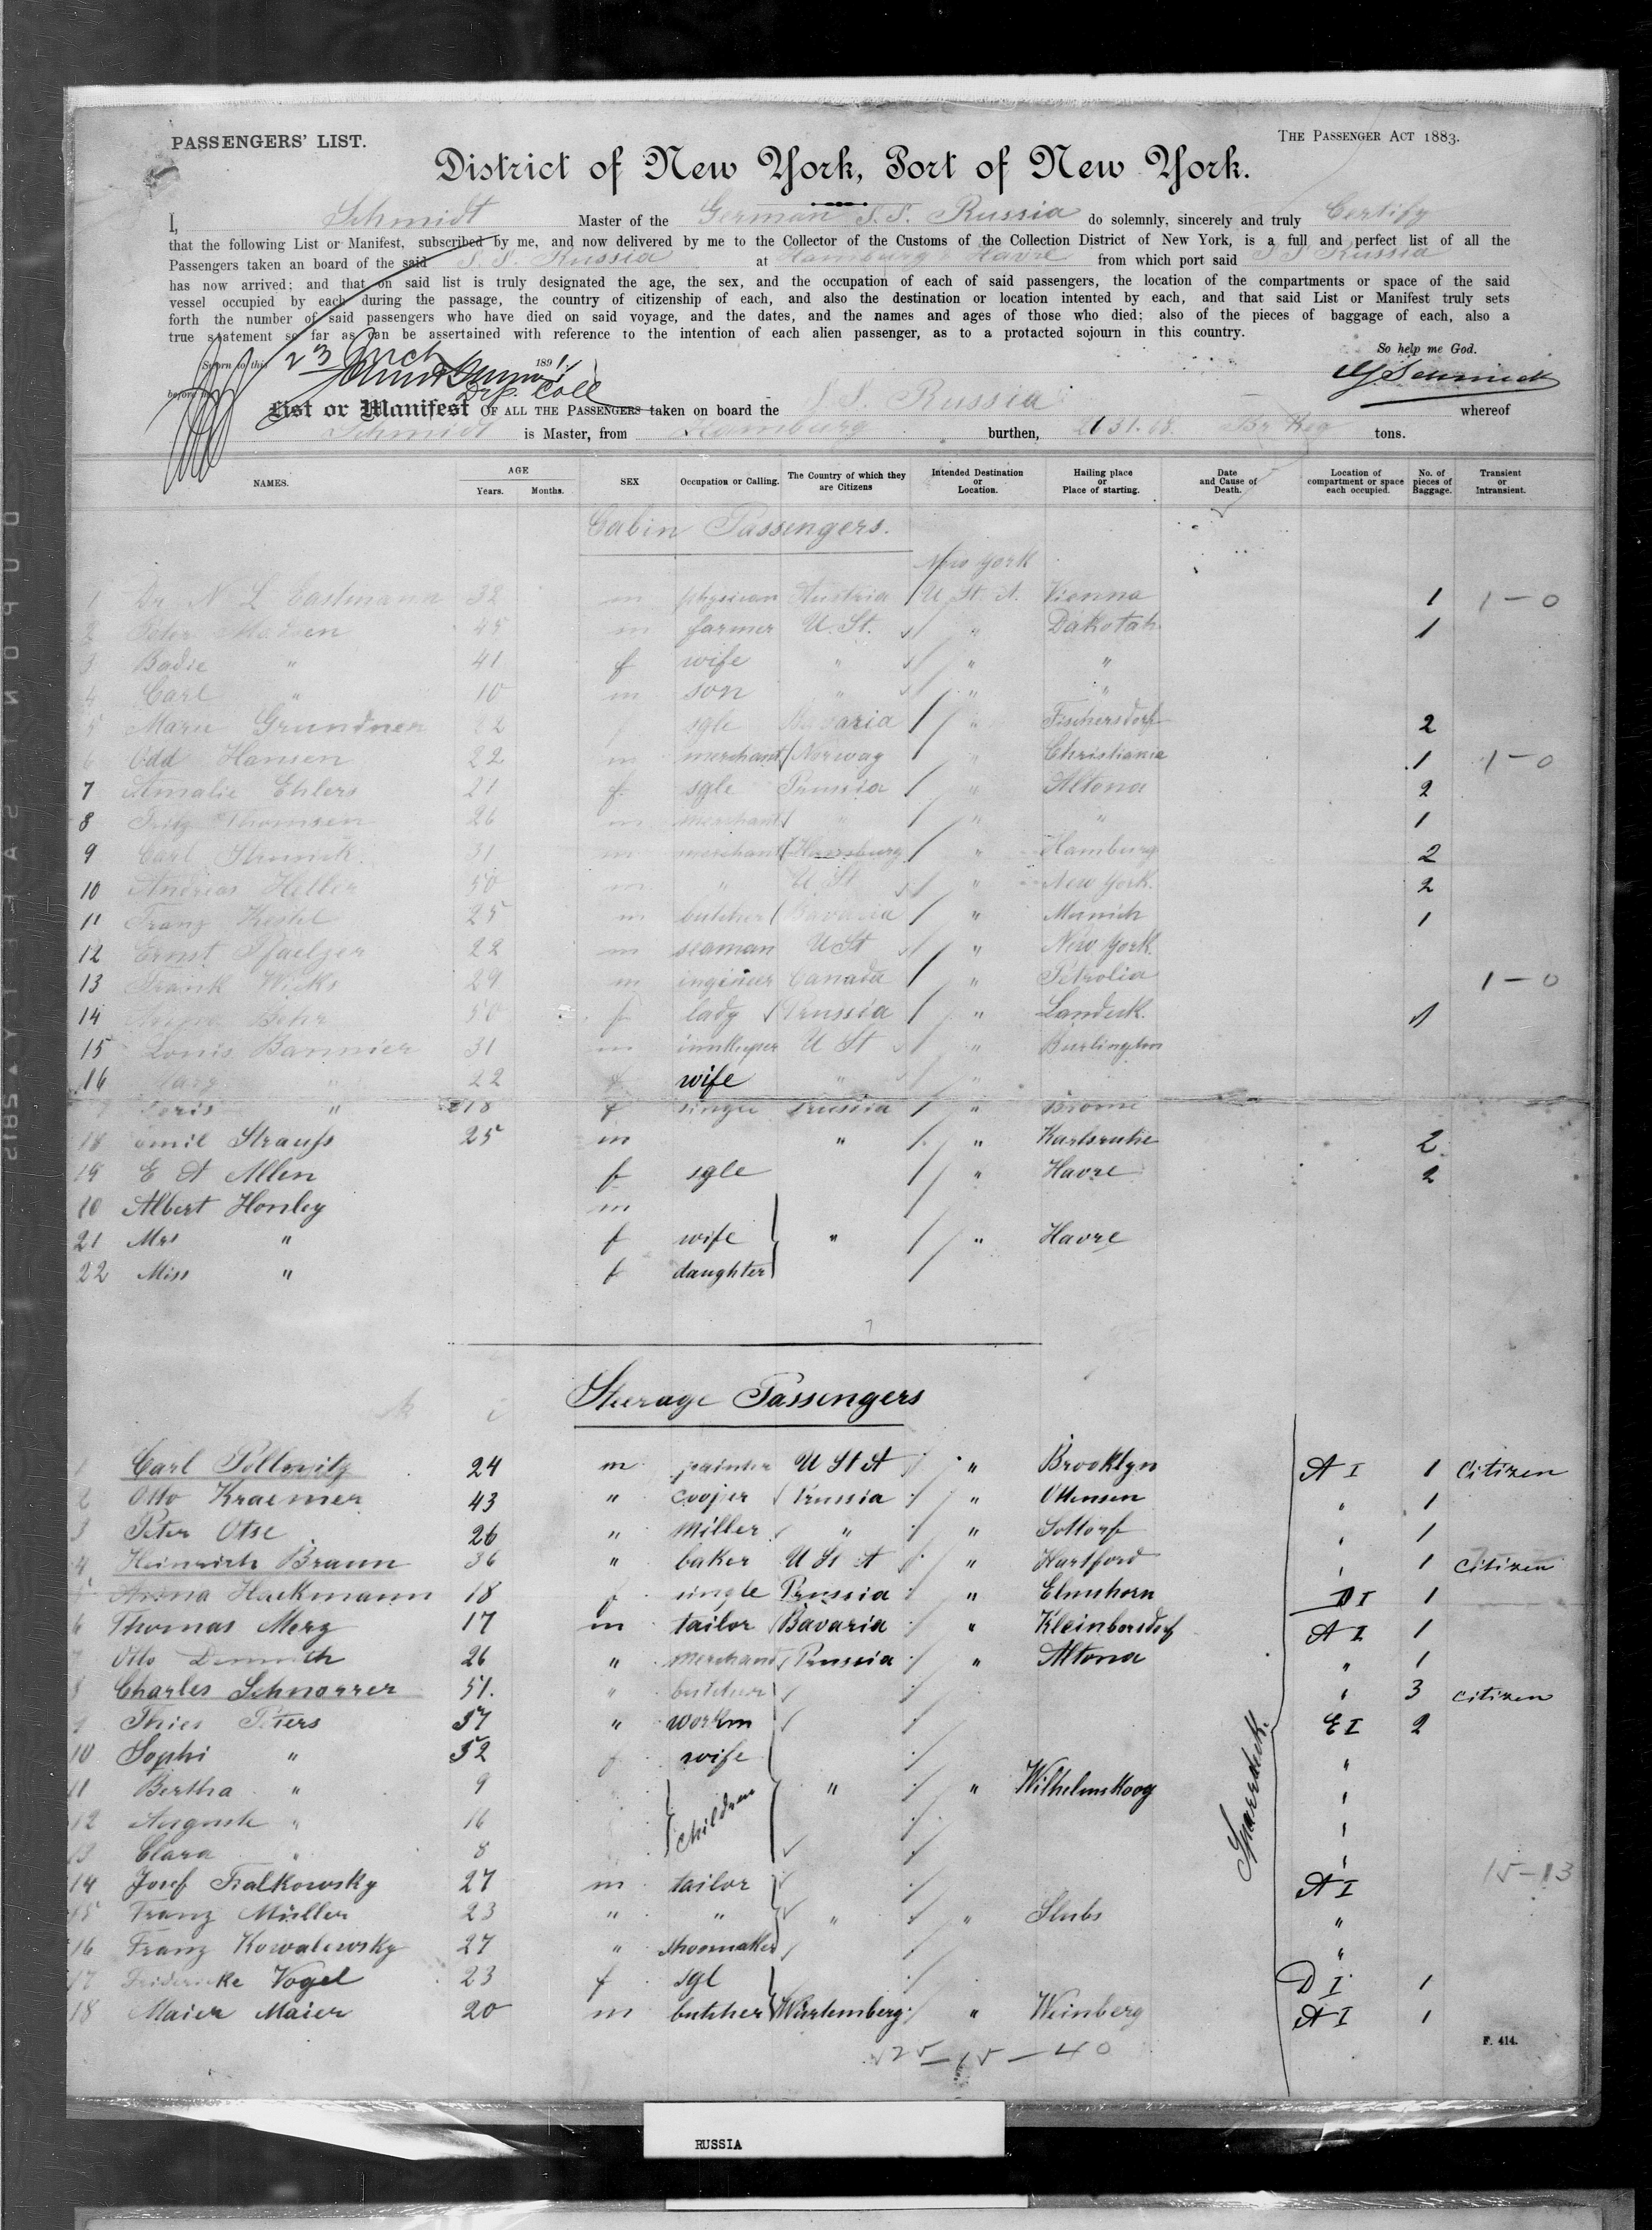 PASSENGERS' LIST.
THE PASSENGER ACT 1883.
District of New York, Port of New York.
I, Schmidt Master of the German S.S. Russia do solemnly, sincerely and truly Certify
that the following List or Manifest, subscribed by me, and now delivered by me to the Collector of the Customs of the Collection District of New York, is a full and perfect list of all the
Passengers taken an board of the said S.S. Russia at Hamburg & Havre from which port said S S Russia
has now arrived; and that on said list is truly designated the age, the sex, and the occupation of each of said passengers, the location of the compartments or space of the said
vessel occupied by each during the passage, the country of citizenship of each, and also the destination or location intented by each, and that said List or Manifest truly sets
forth the number of said passengers who have died on said voyage, and the dates, and the names and ages of those who died; also of the pieces of baggage of each, also a
true statement so far as can be assertained with reference to the intention of each alien passenger, as to a protacted sojourn in this country.
So help me God.
Sworn to this 23 1891
before me
Dep. Coll
List or Manifest OF ALL THE PASSENGERS taken on board the S.S. Russia whereof
Schmidt is Master, from Hamburg burthen, tons.
NAMES. AGE Years. Months. SEX Occupation or Calling. The Country of which they are Citizens Intended Destination or Location. Hailing place or Place of starting. Date and Cause of Death. Location of compartment or space each occupied. No. of pieces of Baggage. Transient or Intransient.
Cabin Passengers.
New York
1 Dr N L Eastmann 32 m physician Austria U. St. A. Vienna 1 1-0
2 Peter Madsen 45 m farmer U. St. " Dakotah 1
3 Badie " 41 f wife " " "
4 Carl " 10 m son " " "
5 Marie Grundner 22 f sgle Bavaria " Fischersdorf 2
6 Odd Hansen 22 m merchant Norway " Christiania 1 1-0
7 Amalie Ehlers 21 f sgle Prussia " Altona 2
8 Fritz Thomsen 26 m merchant " " " 1
9 Carl 31 m merchant Hamburg " Hamburg 2
10 Andreas Heller 50 m " U St " New York. 2
11 Franz 25 m butcher Bavaria " Munich 1
12 Ernst Pfaelzer 22 m seaman U St " New York.
13 Frank Wicks 29 m ingineer Canada " Petrolia 1-0
14 Behr 50 f lady Prussia " Landeck. 1
15 Louis Bannier 31 m innkeeper U St " Burlington
16 Mary " 22 f wife " "
Doris " 18 f single Prussia "
18 Emil Strauss 25 m " " Karlsruhe 2
19 E A Allen f sgle " Havre 2
10 Albert Honley m
21 Mrs " f wife " " Havre
22 Miss " f daughter
Steerage Passengers
1 Carl Pollowitz 24 m painter U St A " Brooklyn A I 1 Citizen
2 Otto Kraemer 43 " cooper Prussia " Ottensen " 1
3 Peter Otse 26 " Miller " " Sottorf " 1
4 Heinrich Braun 36 " baker U St A " Hartford " 1 citizen
5 Anna Hackmann 18 f single Prussia " Elmshorn D I 1
6 Thomas Merz 17 m tailor Bavaria " Kleinborsdorf A I 1
7 Otto 26 " merchand Prussia " Altona " 1
8 Charles Schnorrer 51. " butcher " 3 citizen
9 Thies Peters 57 " workm E I 2
10 Sophi " 52 f wife "
11 Bertha " 9 children " " Wilhelmskoog "
12 Auguste " 16 "
13 Clara " 8 "
14 Josef Fralkowsky 27 m tailor A I 15-13
15 Franz Müller 23 " " " " Slubs "
16 Franz Kowalewsky 27 " shoemaker "
17 Fridericke Vogel 23 f sgl D I 1
18 Maier Maier 20 m butcher Würtemberg " Weinberg A I 1
25-15-40
F. 414.
RUSSIA